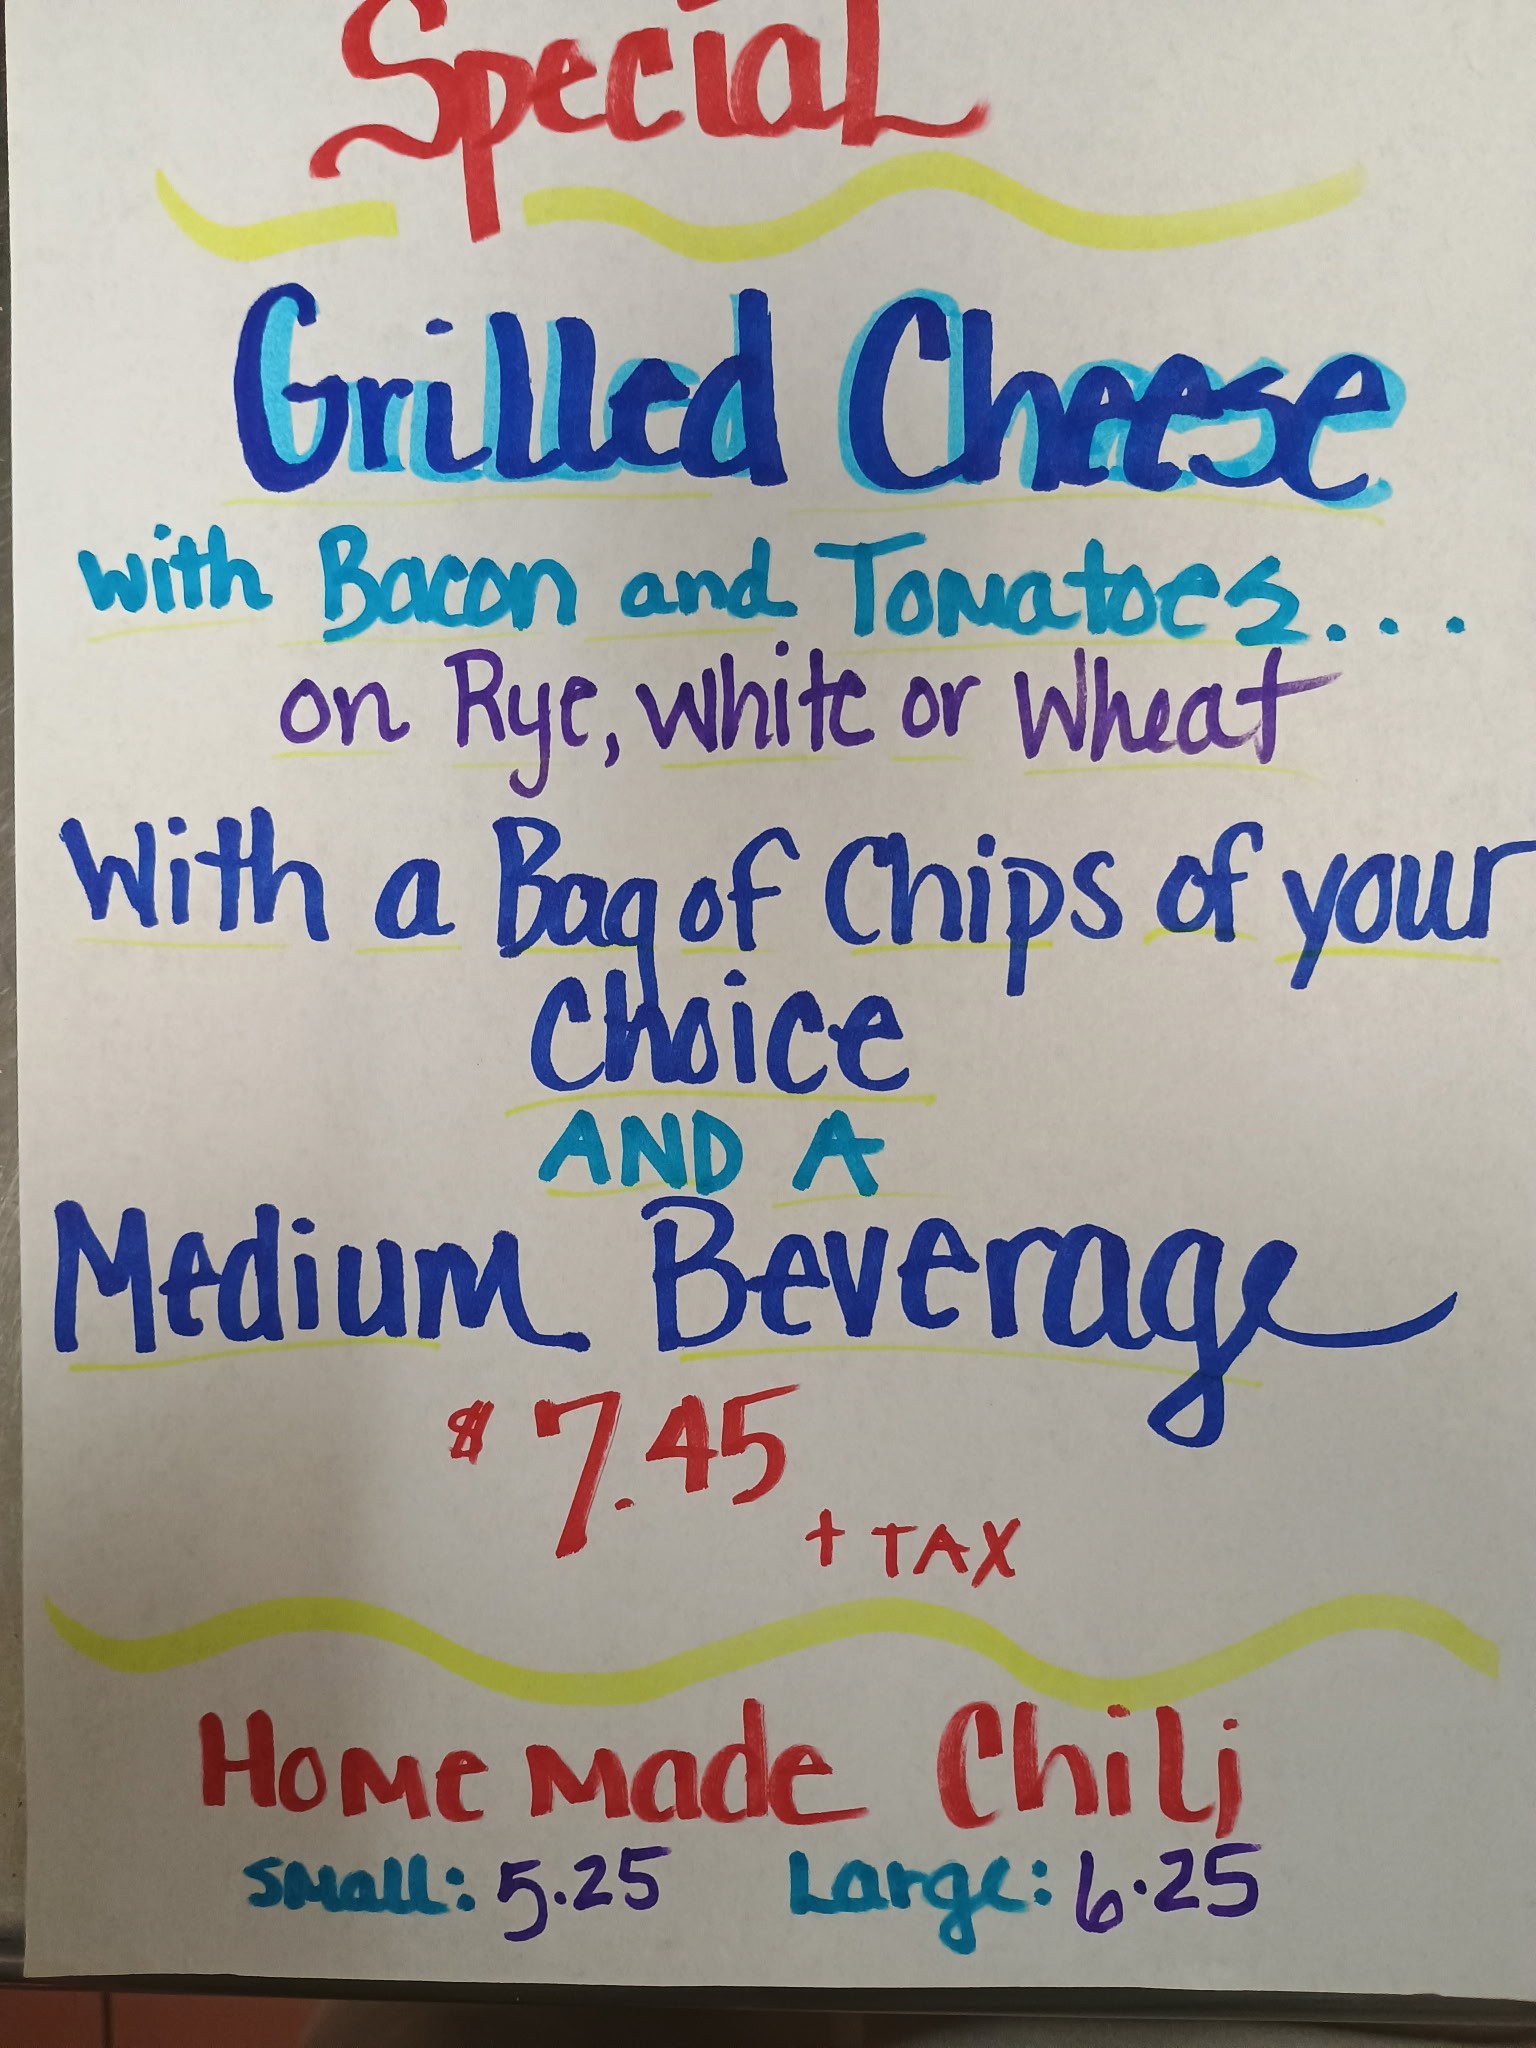 Special
Grilled Cheese
with Bacon and Tomatoes...
on Rye, White or Wheat
With a Bag of Chips of your
Choice
AND A
Medium Beverage
$7.45
+ TAX
Home made Chili
Small: 5.25 Large: 6.25